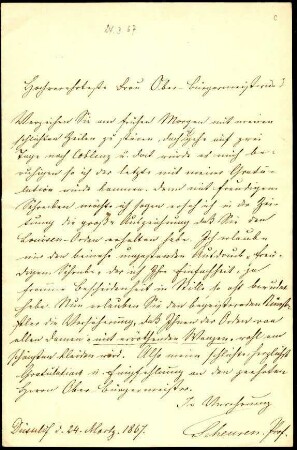 24.3.67
Hochverehrteste Frau Ober-Bürgermeisterin!
Verzeihen Sie am frühen Morgen mit meinen
schlichten Zeilen zu stören, doch gehe auf drei
Tage nach Coblenz u. dort würde es mich be-
unruhigen so ich der letzte mit meiner Gratu-
lation würde kommen, denn mit freudigem
Schrecken möchte ich sagen ersah ich in der Zei-
tung die große Auszeichnung daß Sie den
Louisen-Orden erhalten habe. Ich erlaube
mir den beinahe unpassenden Ausdruck, freu-
digem Schrecke, der ich Ihre Einfachheit, ja
fromme Bescheidenheit in Stille so oft bewundert
habe. Nun erlauben Sie dem begeisterten Künst-
ler die Versicherung, daß Ihnen der Orden von
allen Damen, mit erröthenden Wangen, wohl am
schönsten kleiden wird. Also meine schlichte herzlichste
Gratulation u. Empfehlung an den geehrten
Herrn Ober-Bürgermeister.
In Verehrung
Düsseld. d. 24. Martz. 1867. Scheuren. Prof.